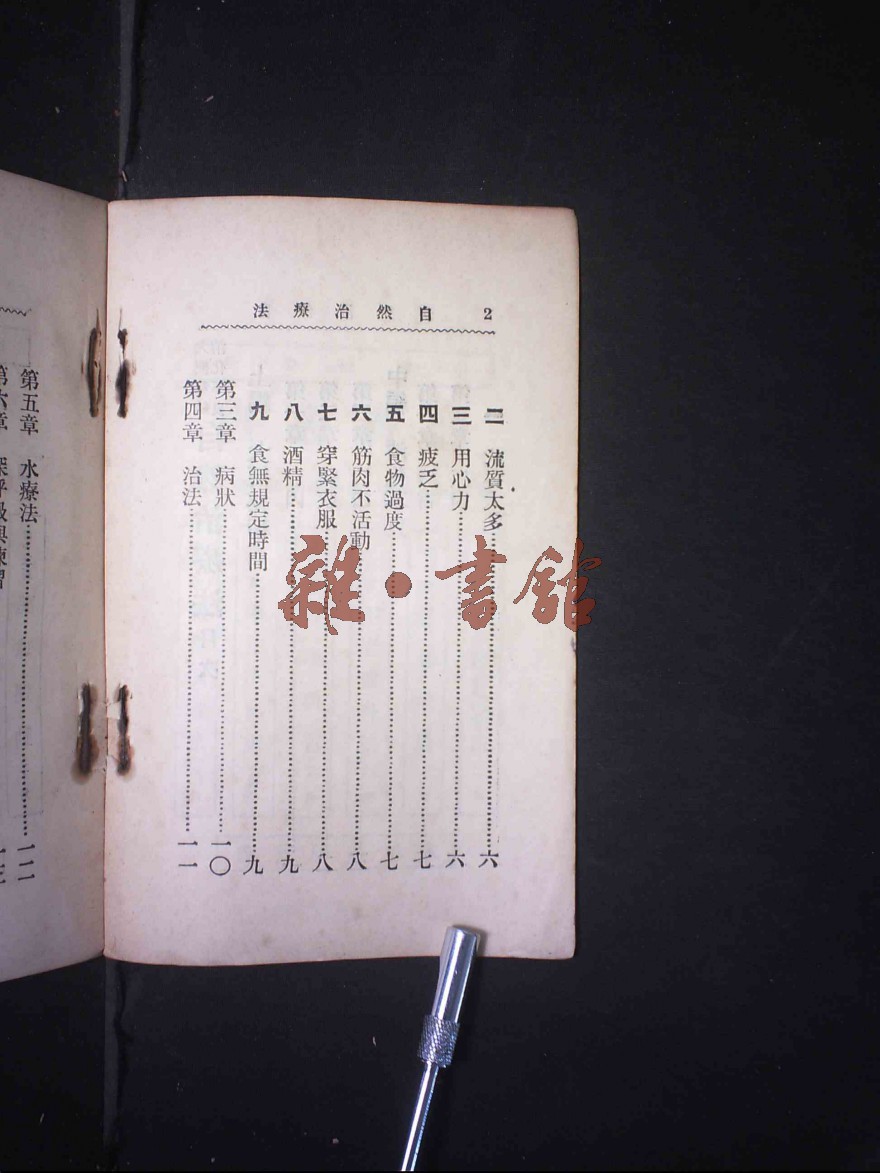 2　自然治療法
二　流質太多……六
三　用心力……六
四　疲乏……七
五　食物過度……七
六　筋肉不活動……八
七　穿緊衣服……八
八　酒精……九
九　食無規定時間……九
第三章　病狀……一〇
第四章　治法……一一
第五章　水療法……一二
第六章　深呼吸與練習……一三
雜·書館